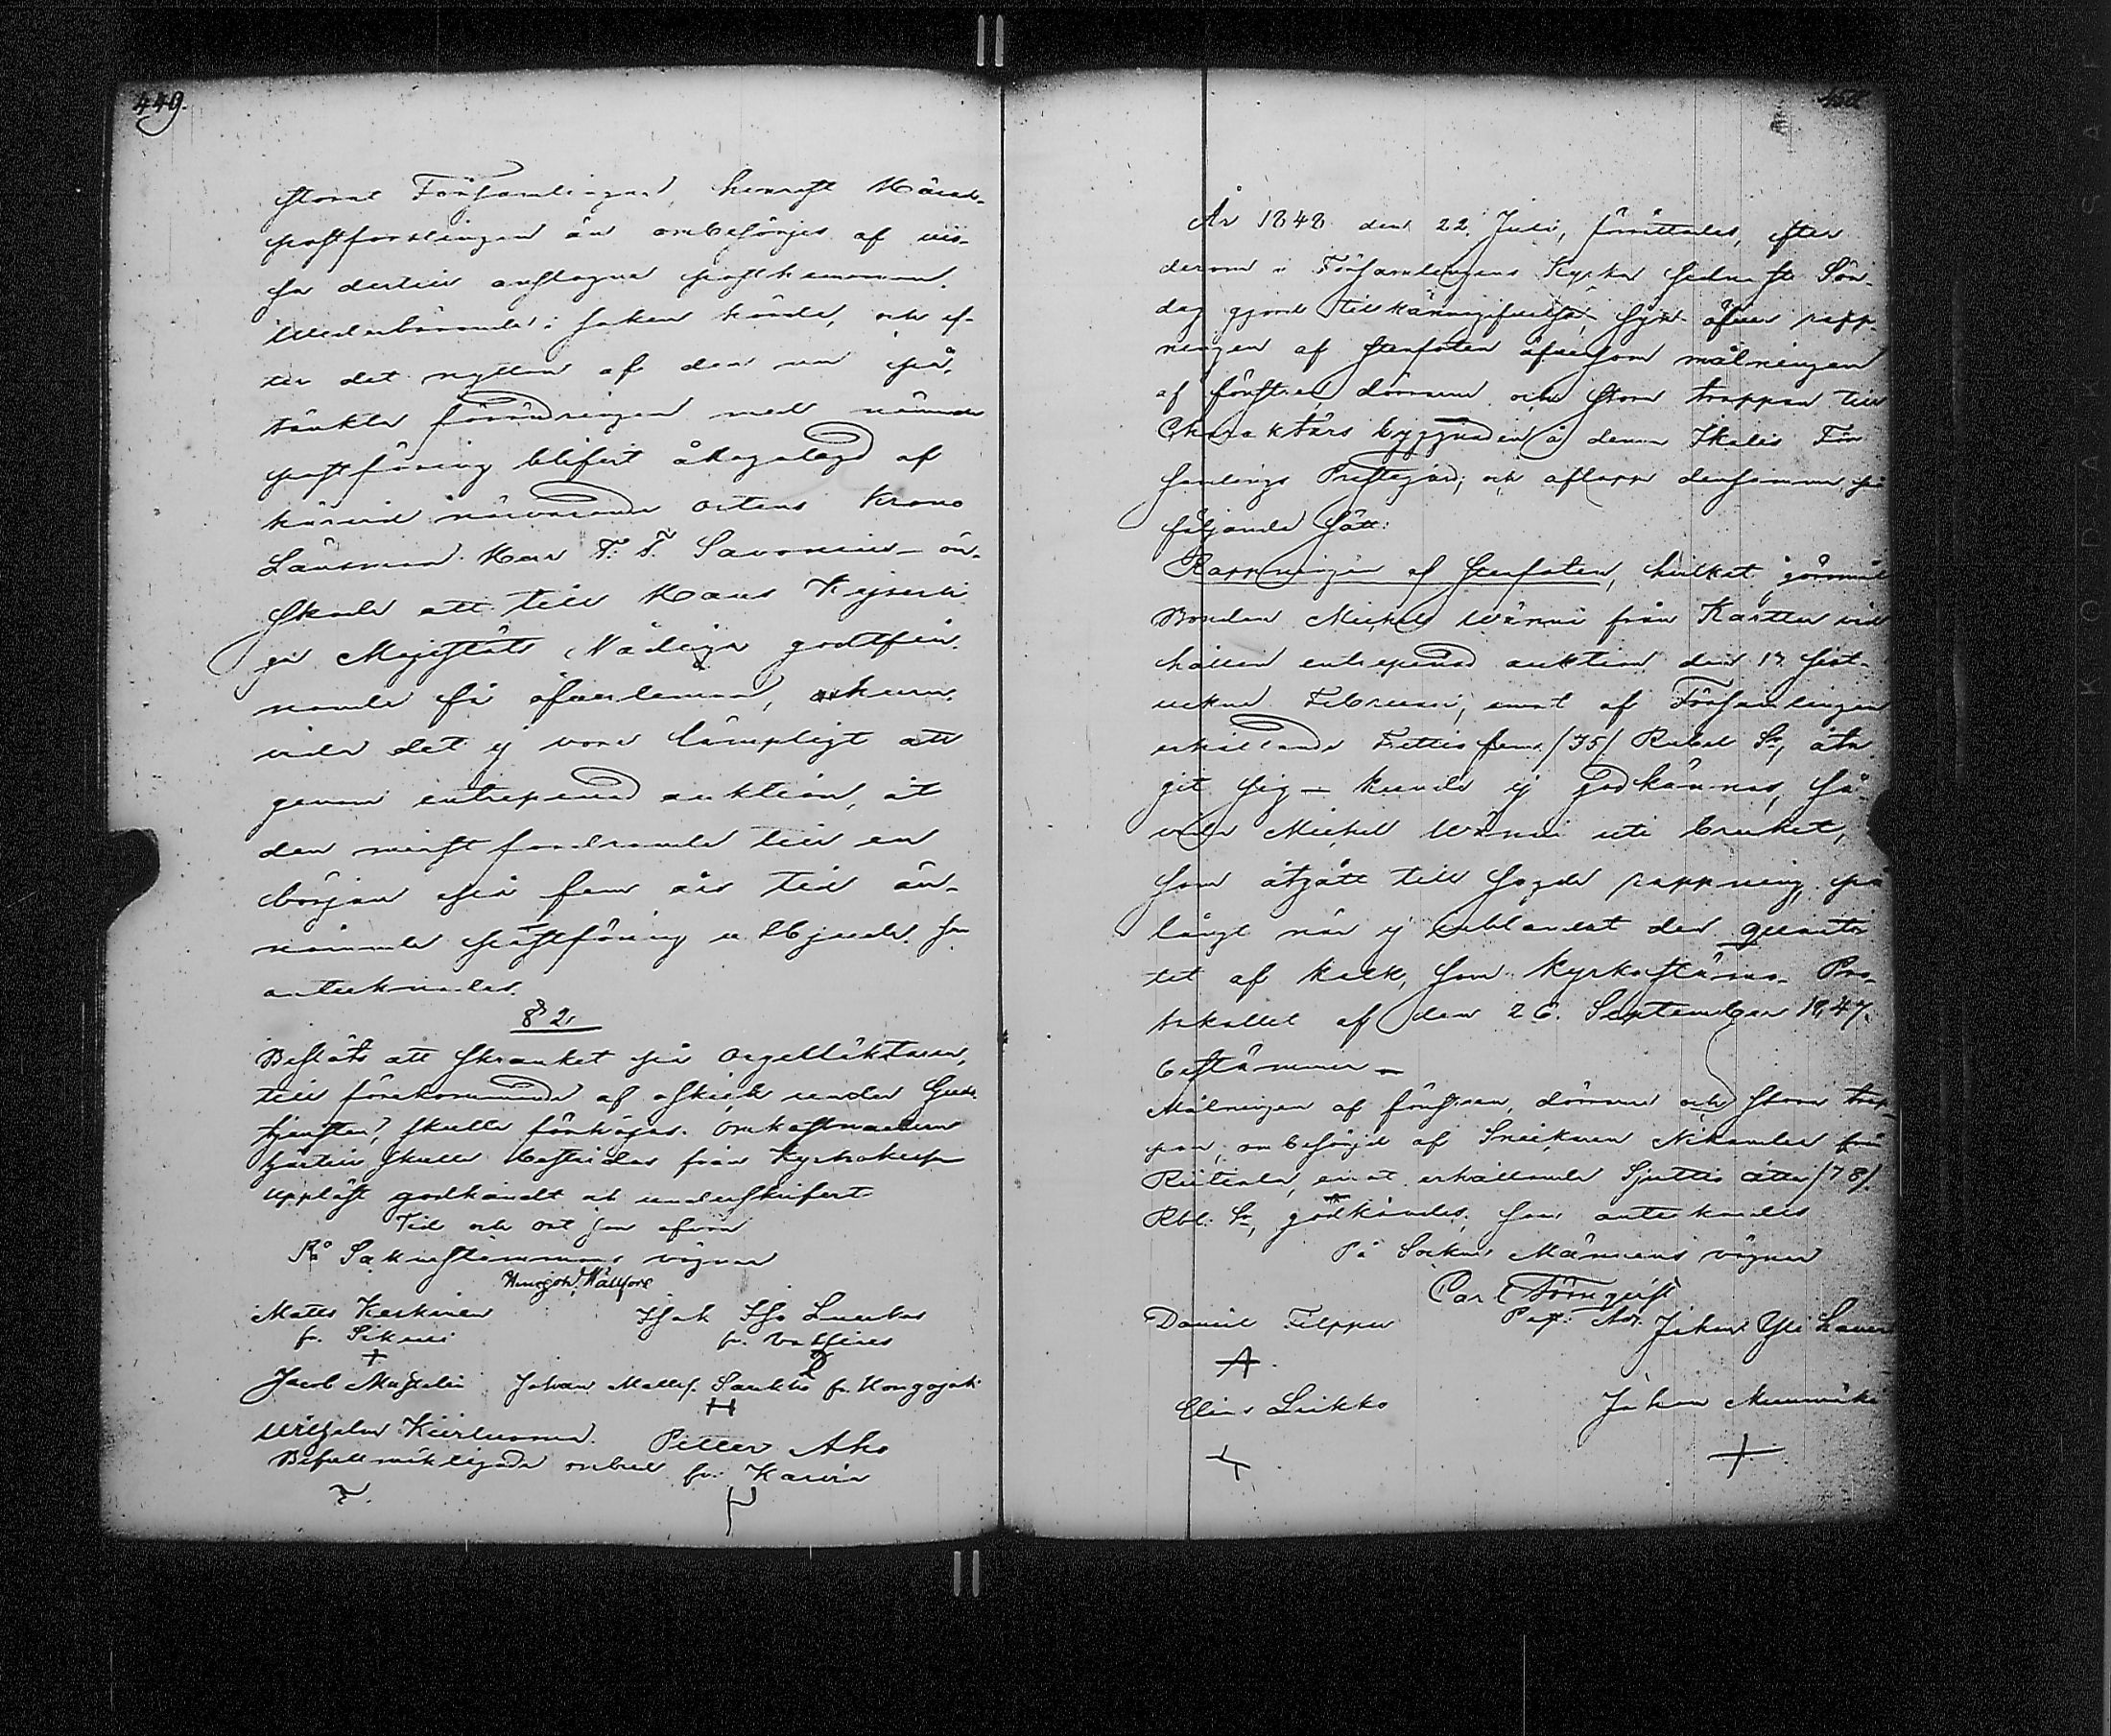 449.
stora Församlingen, hvarest Härads-
postföringen än ombesörjes af vis-
sa dertill anslagna posthemman.
Wederbörande i saken hörde, och ef-
ter det nyttan af den nu på-
tänkta förändringen med nämnde
postföring blifvit ådagalagd af
härvid närvarande ortens Krono
Länsman Herr F. F. Savonius - ön-
skade att till Hans Kejserli-
ga Majestäts Nådiga godtfin-
nande få öfverlemna, huru-
vida det ej vore lämpligt att
genom entreprenad auktion, åt
den minst fordrande till en
början på fem års tid än-
nämnde postföring utbjuda. Som
antecknades.
§ 2.
Beslöts att skranket på Orgelläktaren,
till förekommande af oskick under Guds-
tjensten, skulle förhöjas. Omkostnaderna
härtill skulle bestridas från Kyrkokassan
Uppläst godkändt och underskrifvet
Tid och ort som ofvan
På Sockenstämmans vägnar
Matts Keskinen
fr. Sikuri
Isak Iso Luerbas
Jacob Mustalin Johan Mattss. Saukko fr. Kongojoki
Wilhelm Kiirluoma. Petter Aho
Befullmäktigade ombud fr. Karvia
År 1848 den 22 Juli, förrättades, efter
derom i Församlingens Kyrka sednaste Sön-
dag gjord tillkännagifvelse, syn öfver rapp-
ningen af stenfoten äfvensom målningen
af fönstren dörrarne och stora trappan till
Charaktärs byggnaden å denna Ikalis För-
samlings Prestegård, och aflopp densamma på
följande sätt:
Rappningen af stenfoten, hvilket göromål
Bonden Michel Wänni från Kartu vid
hållen entreprenad auktion den 17 sist-
vekne Februari, emot af Församlingen
erhållande Trettio fem /35/ Rubel Sr, åta-
git sig - kunde ej godkännas, så-
vida Michel Wänni uti bruket,
som åtgått till sagde rappning, på
långt när ej inblandat den quanti-
tet af kalk, som Kyrkostämmo Pro-
tokollet af den 26. September 1847.
bestämmer -
Målningen af fönstren, dörrarne och stora trap-
pan, ombesörjd af Snickaren Nikander från
Riitiala, emot erhållande Sjuttio åtta /78/
Rbl. Sr, godkändes, som antecknades
På Socknemännens vägnar
Carl Törnqvist
Past: Adj.
Daniel Filppu
Johan Yli Lauri
Elias Leikko